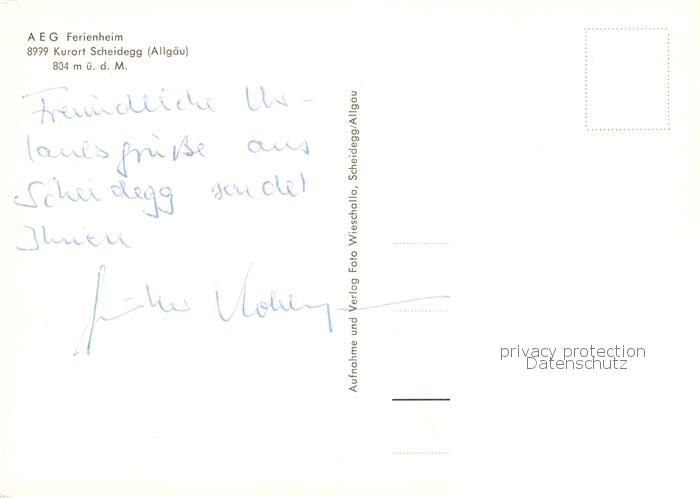 AEG Ferienheim
8999 Kurort Scheidegg (Allgäu)
804 m ü. d. M.
Freundliche Ur-
laubsgrüße aus
Scheidegg sendet
Ihnen
Aufnahme und Verlag Foto Wieschalla, Scheidegg/Allgäu
privacy protection
Datenschutz